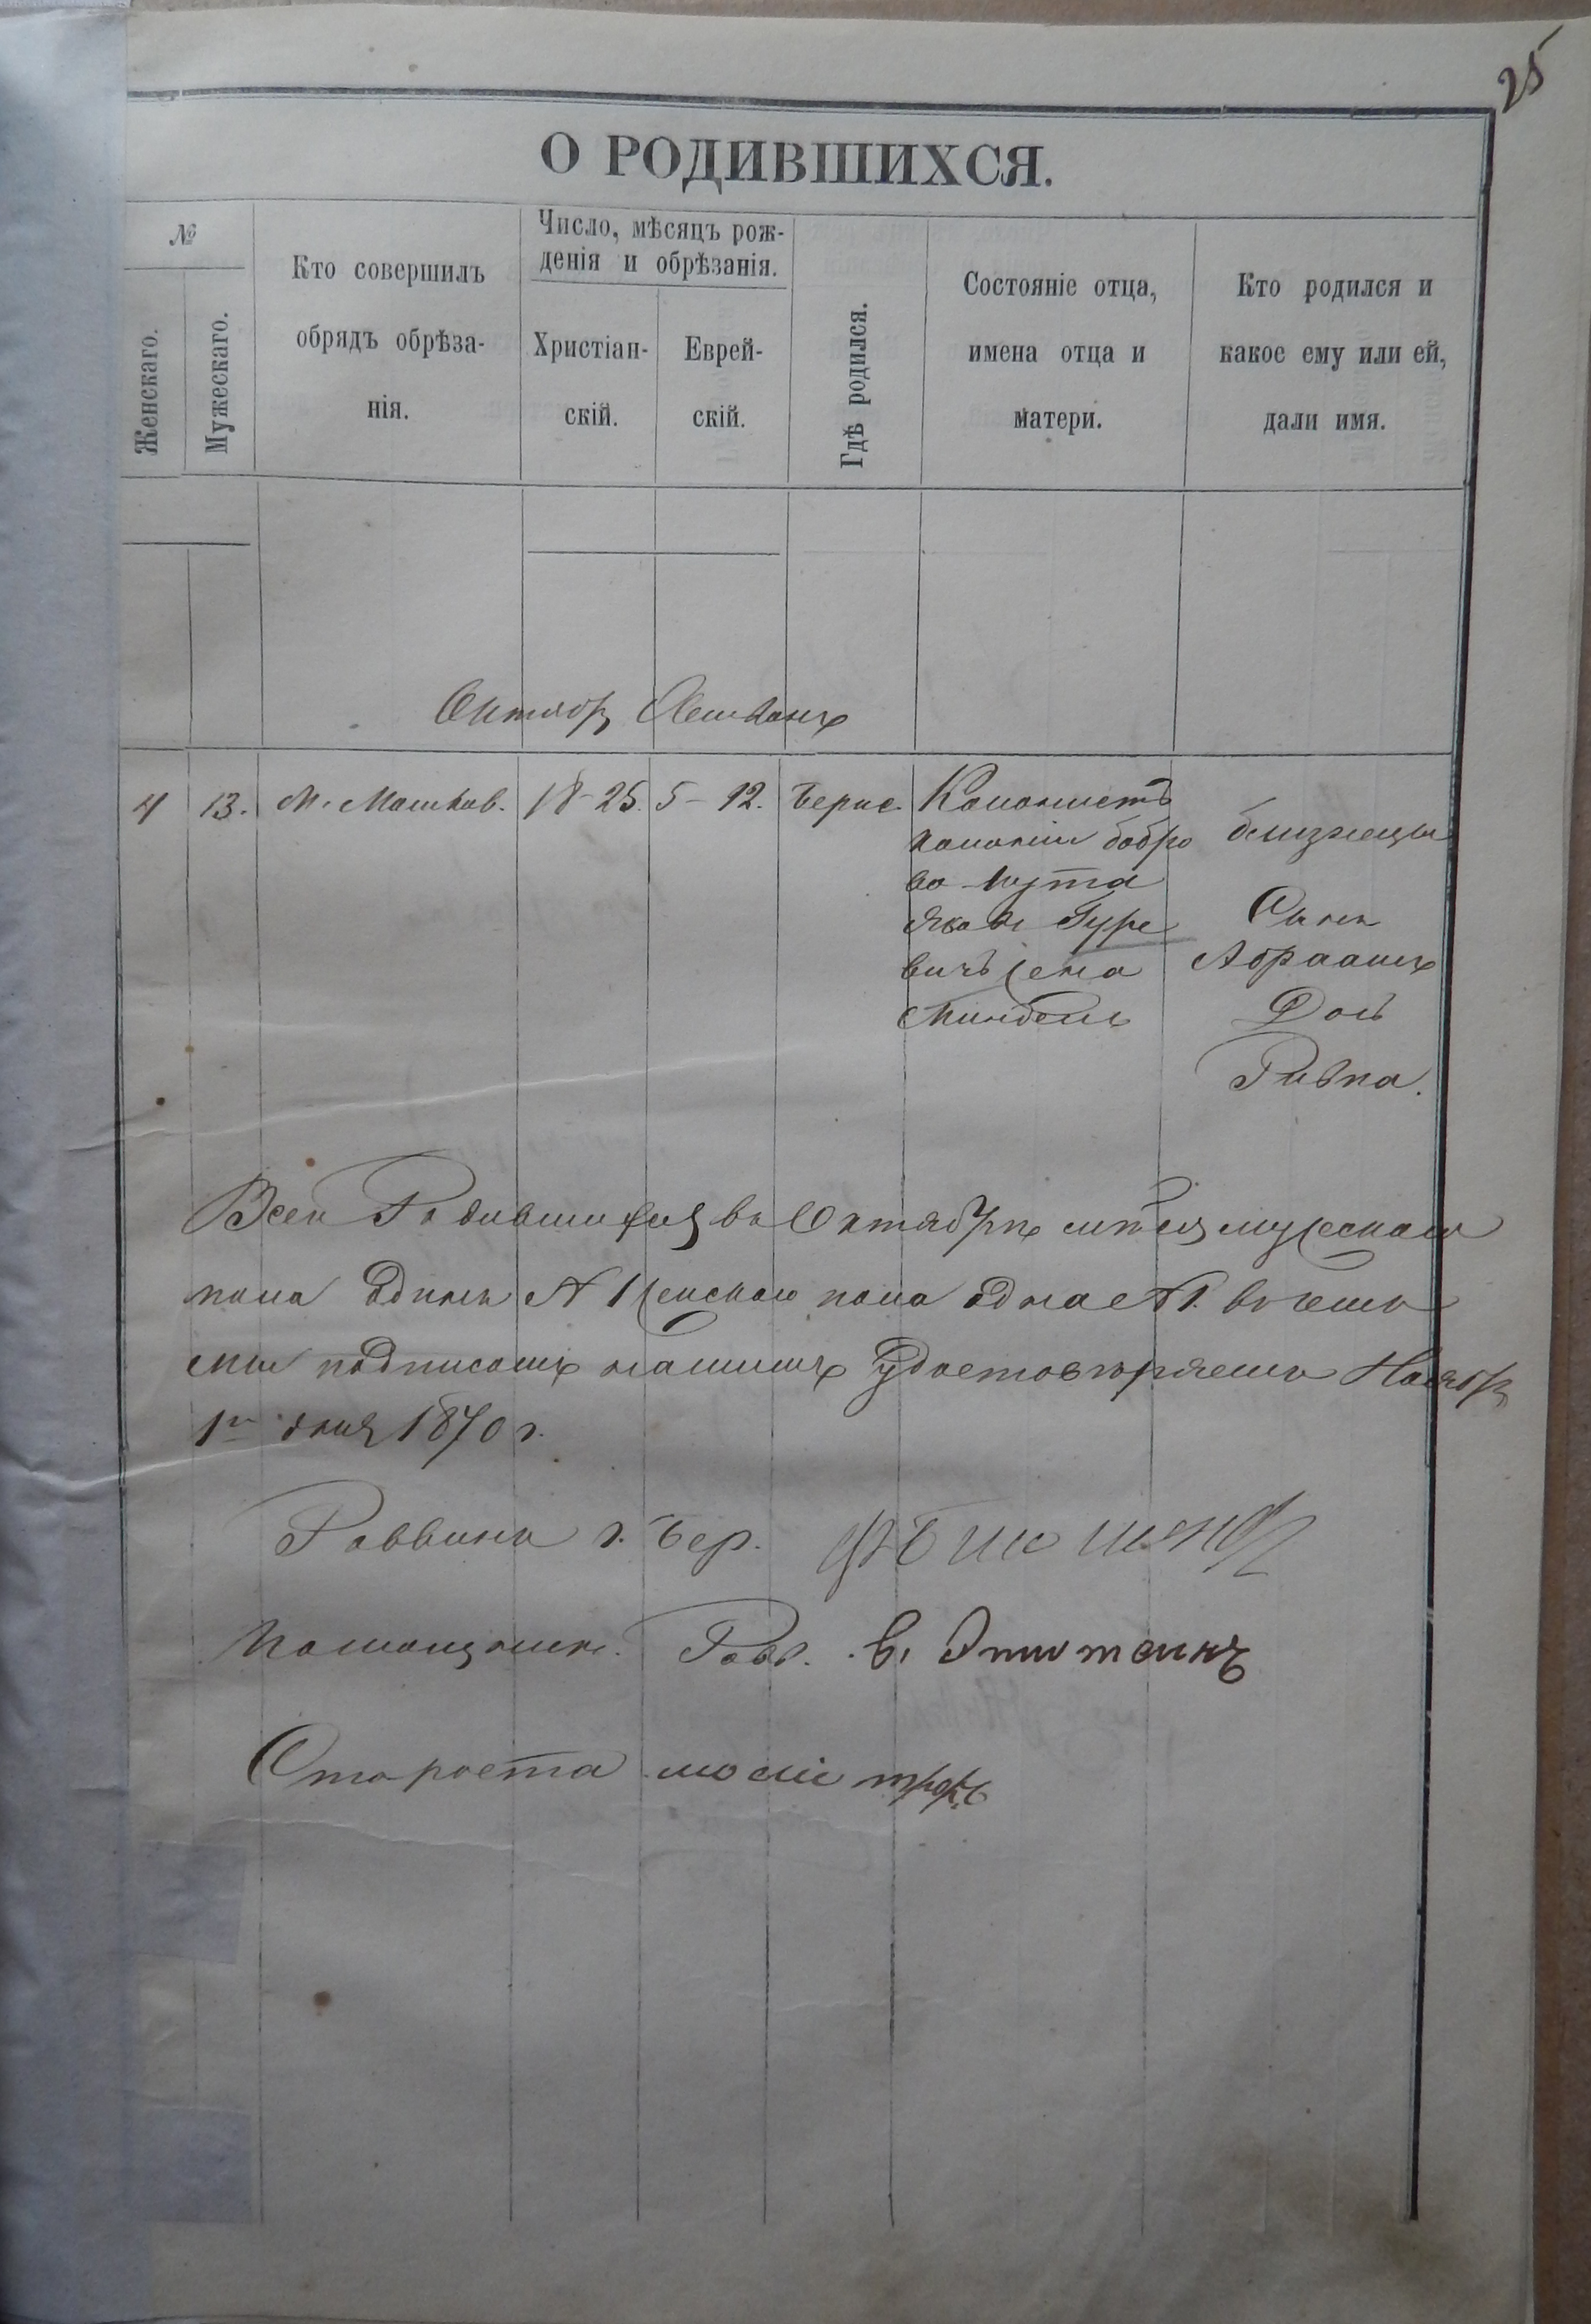 25
О РОДИВШИХСЯ.
№
Женскаго.
Мужескаго.
Кто совершилъ
обрядъ обрѣза-
нія.
Число, мѣсяцъ рож-
денія и обрѣзанія.
Христіан-
скій.
Еврей-
скій.
Гдѣ родился.
Состояніе отца,
имена отца и
матери.
Кто родился и
какое ему или ей,
дали имя.
Октябрь Хешванъ
4 13. М. Машков. 18-25. 5-12.
Колонистъ
колоніи Бобро
ва Кута
Яковъ Гуре
вичъ жена
Миндель
близнецы
Сынъ
Абраамъ
Дочь
Ривка.
Всехъ Родившихся въ Октябрѣ м-цѣ мужескаго
пола одинъ А Женскаго пола одна А 1. въ чемъ
мы подписомъ нашимъ удостовѣряемъ Ноябр
1го дня 1870 г.
Раввинъ г. Бер.
Помощникъ. Рав. Эпштейнъ
Староста